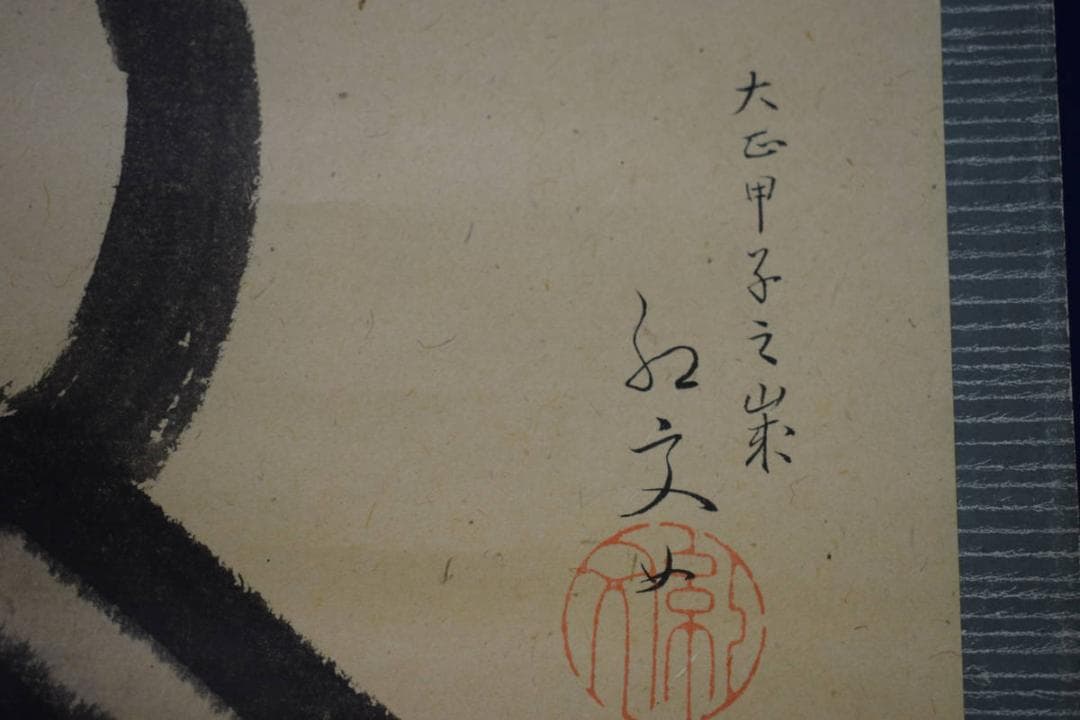 大正甲子之歳
紉文女